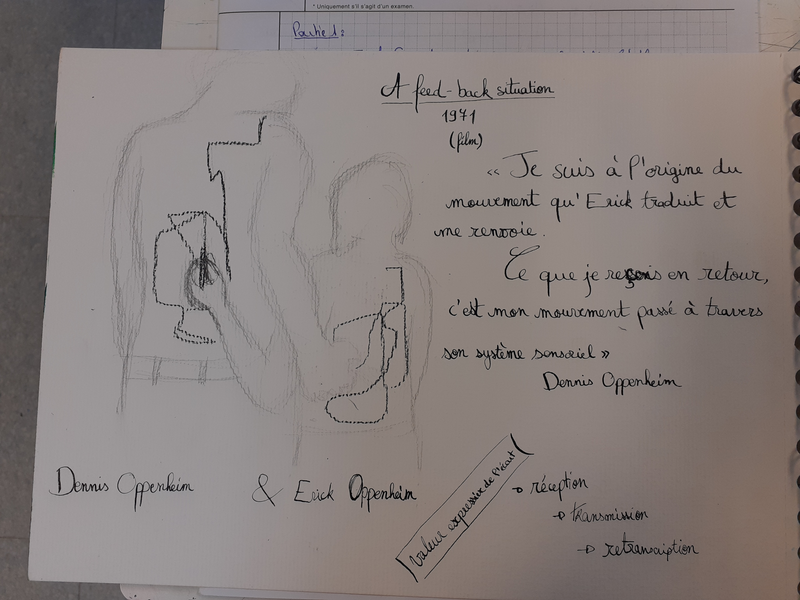 * Uniquement s'il s'agit d'un examen.
Partie 1:
A feed-back situation
1971
(film)
« Je suis à l'origine du
mouvement qu'Erick traduit et
me renvoie.
Ce que je reçois en retour,
c'est mon mouvement passé à travers
son système sensoriel »
Dennis Oppenheim
Dennis Oppenheim & Erick Oppenheim
Valeur expressive de l'écart
→ réception
→ transmission
→ retranscription